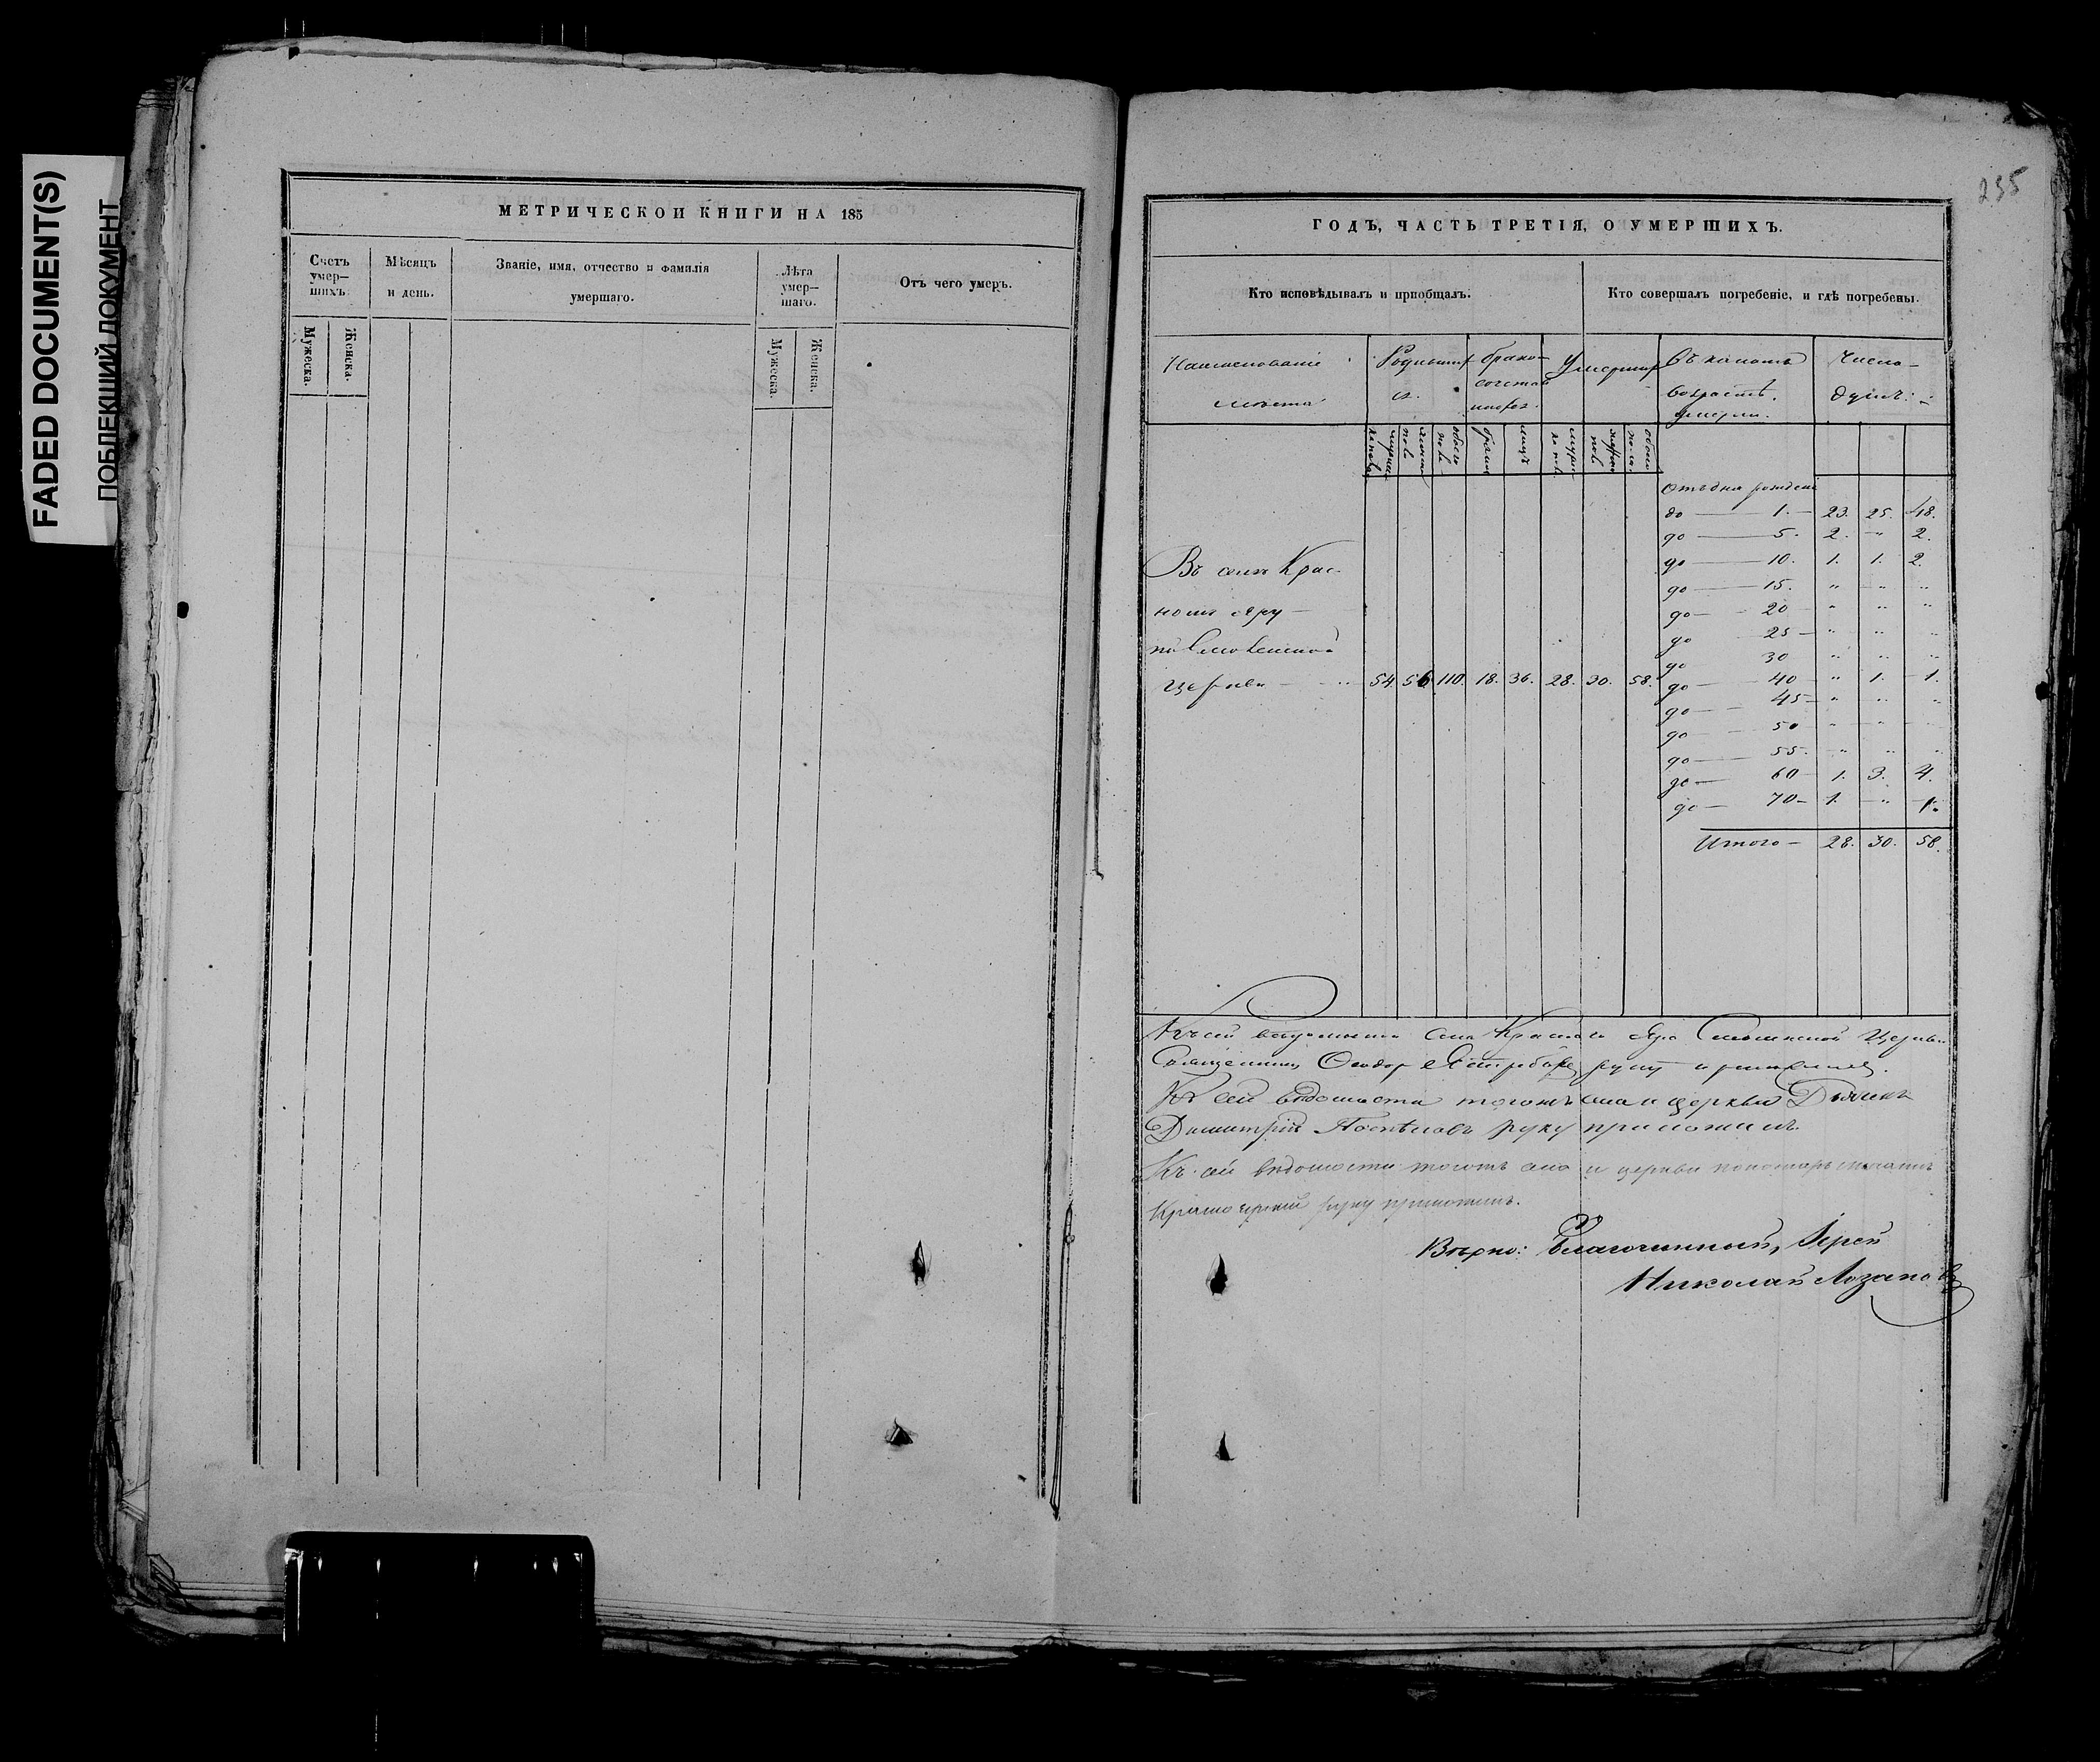 FADED DOCUMENT(S)
ПОБЛЕКШИЙ ДОКУМЕНТ
МЕТРИЧЕСКОИ КНИГИ НА 185
Счетъ умер—шихъ.
Мѣсяцъ и день.
Званіе, имя, отчество и фамилія умершаго.
Лѣта умер—шаго.
Отъ чего умеръ.
Мужеска.
Женска.
Мужеска.
Женска.
235
ГОДЪ, ЧАСТЬ ТРЕТІЯ, О УМЕРШИХЪ.
Кто исповѣдывалъ и пріобщалъ.
Кто совершалъ погребеніе, и гдѣ погребены.
Наименованіе мѣста
Умерших
Въ какомъ возрастѣ умерли.
Число душъ
Отъ дня рожденія
до 1. 23. 25. 48.
до 5. 2. " 2.
до 10. 1. 1. 2.
до 15. " " "
до 20 " " "
до 25 " " "
до 30 " " "
до 40 " 1. 1.
до 45 " " "
до 50 " " "
до 55. " " "
до 60 1. 3. 4.
до 70 1. " 1.
Итого 28. 30. 58.
Въ селѣ Крас
номъ Яру
церкви 54. 56. 110. 18. 36. 28. 30. 58.
Къ сей ведомости Села Краснаго Яра Церкви
Священникъ Ѳеодоръ руку приложилъ.
Къ сей вѣдомости тогожъ села и церкви Дьячекъ
Димитрій Поспѣловъ руку приложилъ.
Къ сей вѣдомости тогожъ села и церкви пономарь
руку приложилъ.
Вѣрно: Благочинный, Іерей
Николай Лозановъ